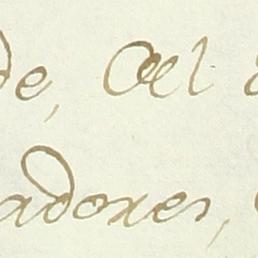 de, Oel
adores,